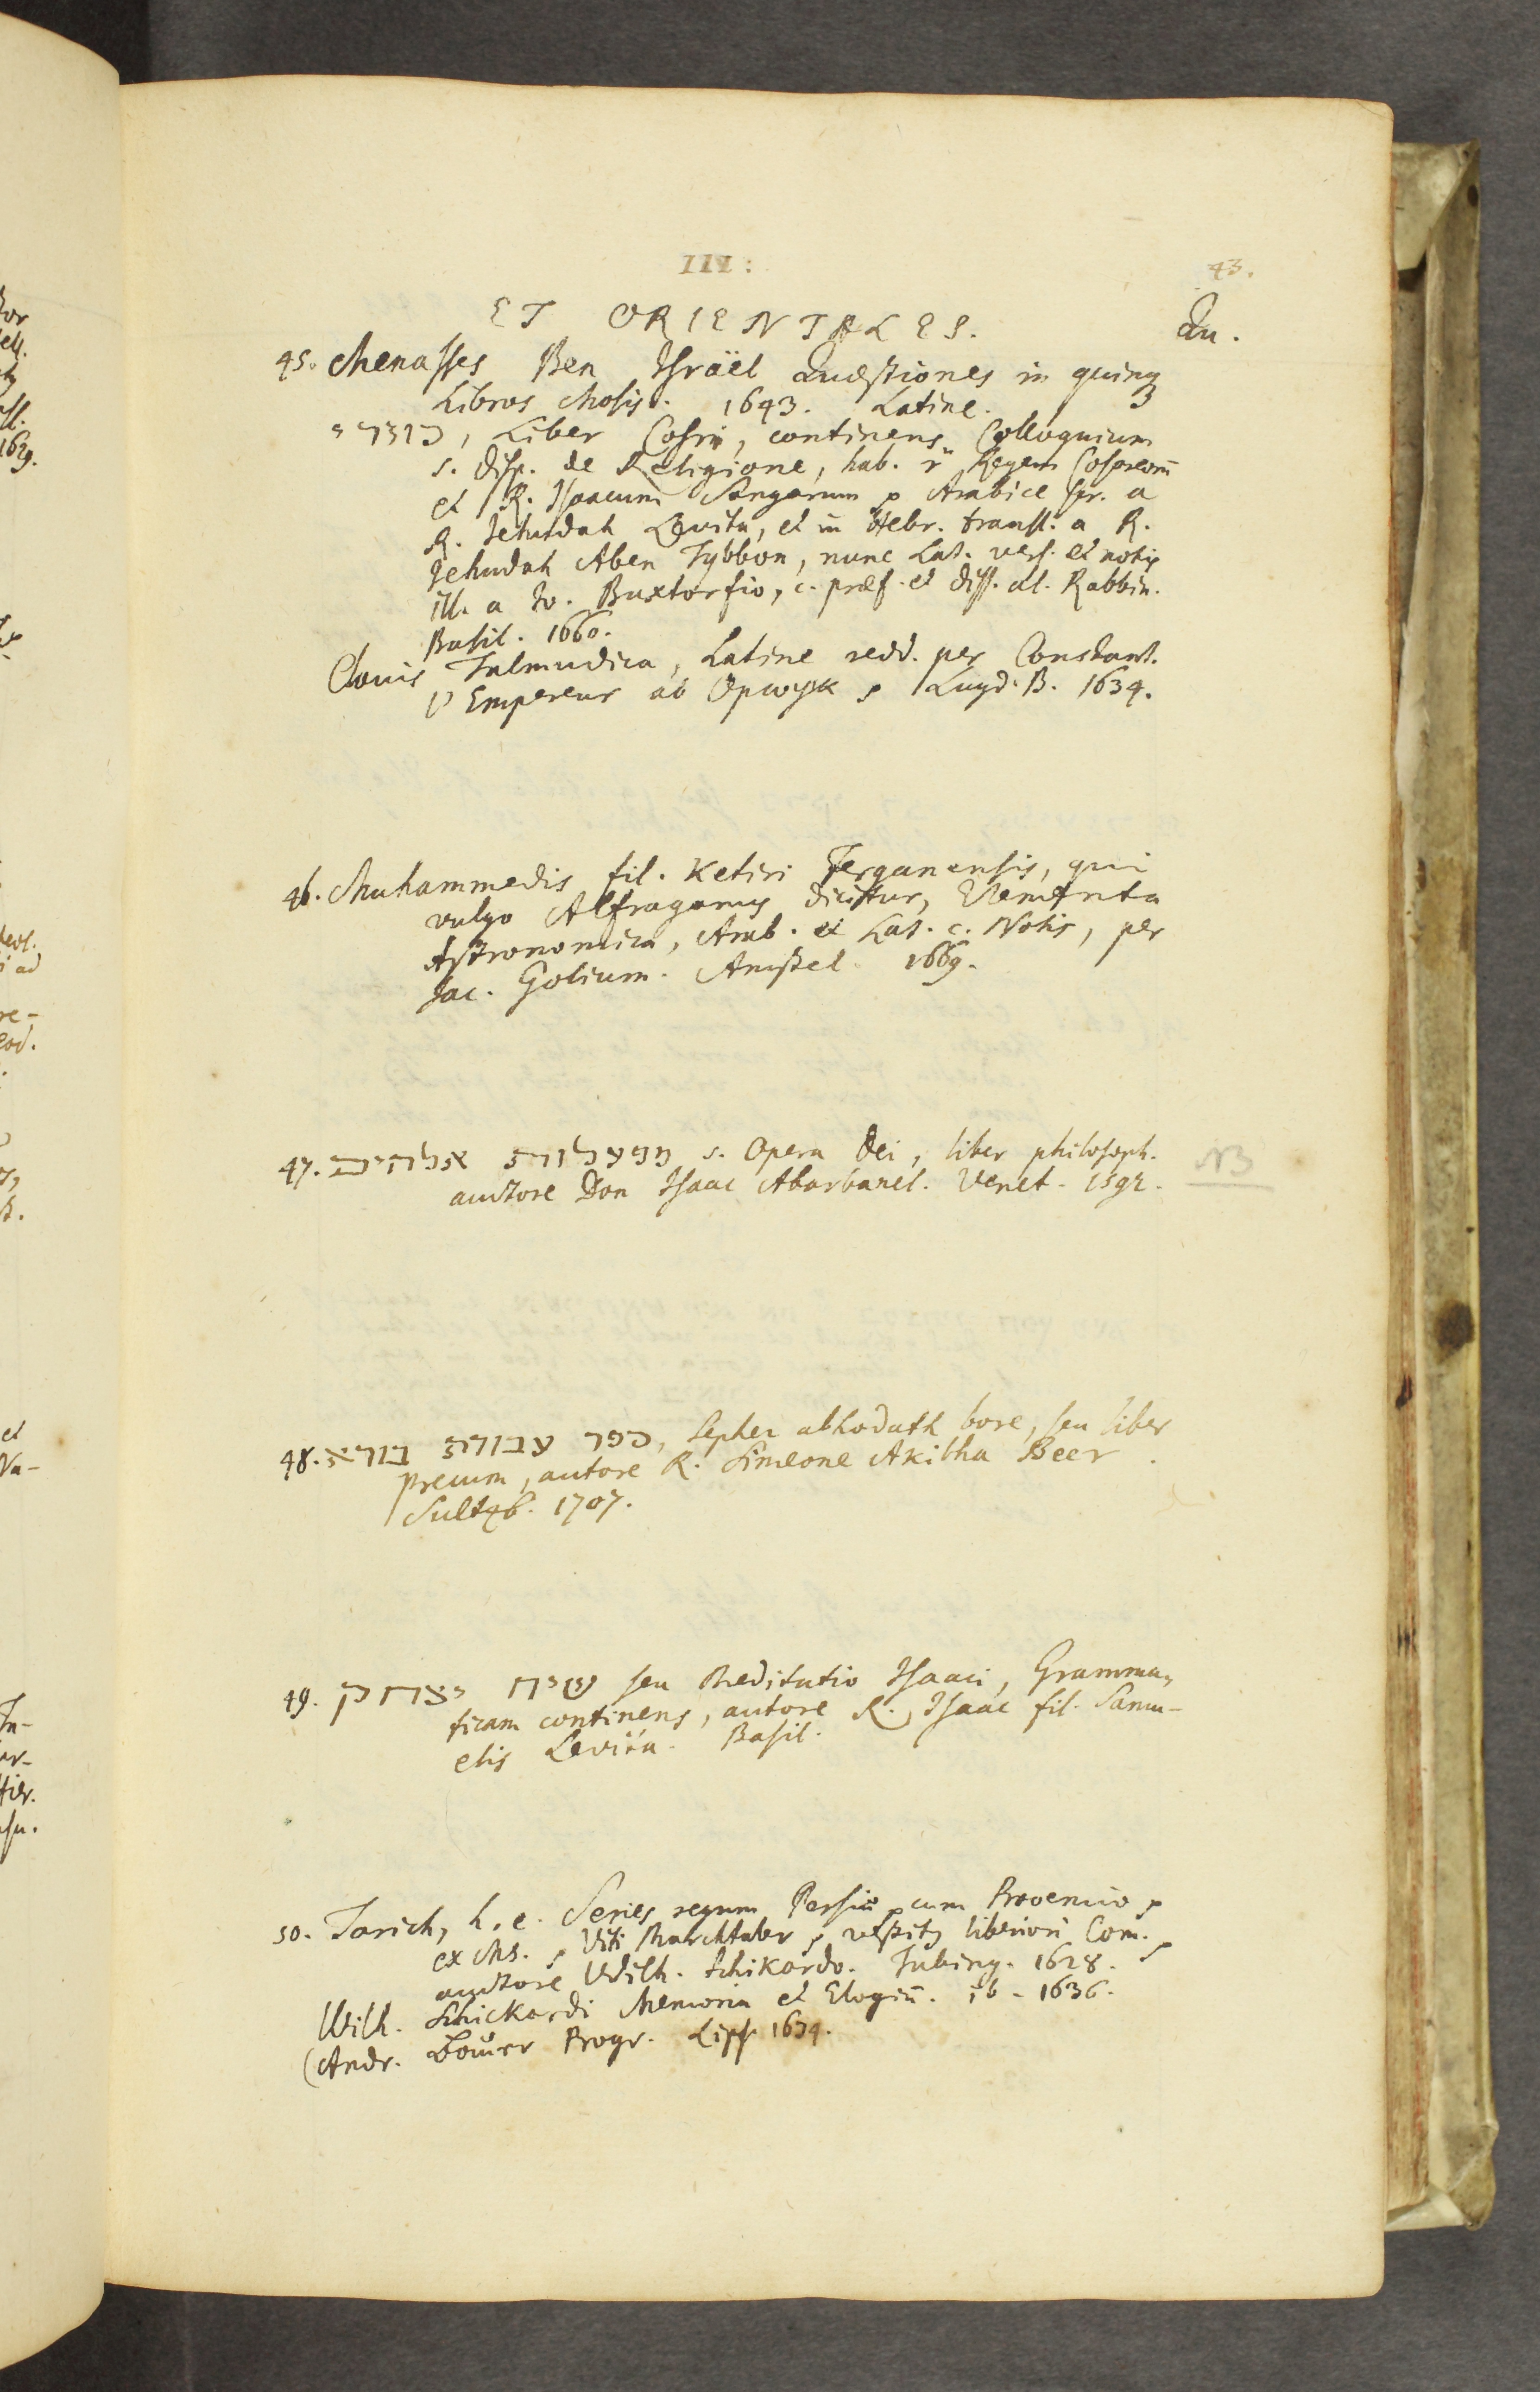 III:
43.
ET ORIENTALES.
Qu.
45. Menasses Ben Israël Quæstiones in quinq3
Libros Mosis. 1643. Latine.
כוזרי, Liber Cosri, continens Colloquium
s. disp. de Religione, hab. Regem Cosareorū
et R. Isaacum Sangarum, Arabice scr. a
R. Jehudah Levita, et in Hebr. transl. a R.
Jehudah Aben Tybbon, nunc Lat. vers. et notis
ill. a Jo. Buxtorfio, c. præf. et diss. al. Rabbin.
Basil. 1660.
Clavis Talmudica, Latine redd. per Constant.
l'Empereur ab Opwyk, Lugd. B. 1634.
46. Muhammedis fil. Ketiri Ferganensis, qui
vulgo Alfraganus dicitur, Elementa
Astronomica, Arab. et Lat. c. Notis, per
Jac. Golium. Amstel. 1669.
47. מפעלות אלהים s. Opera Dei, liber philosoph.
auctore Don Isaac Abarbanel. Venet. 1592.
NB
48. ספר עבודת בורא, Sepher abhodath bore, seu liber
precum, autore R. Simeone Akibha Beer.
Sultzb. 1707.
49. שיח יצחק seu Meditatio Isaaci, Gramma-
ticam continens, autore R. Isaac fil. Samu-
elis Levita. Basil.
50. Tarich, h. e. Series regum Persiæ, cum Prooemio,
ex Ms., Viti Marchtaler, liberiori Com.,
auctore Wilh. Schikardo. Tubing. 1628.
Wilh. Schickardi Memoria et Elogiū. ib. 1636.
(Andr. Progr. Lips. 1634.